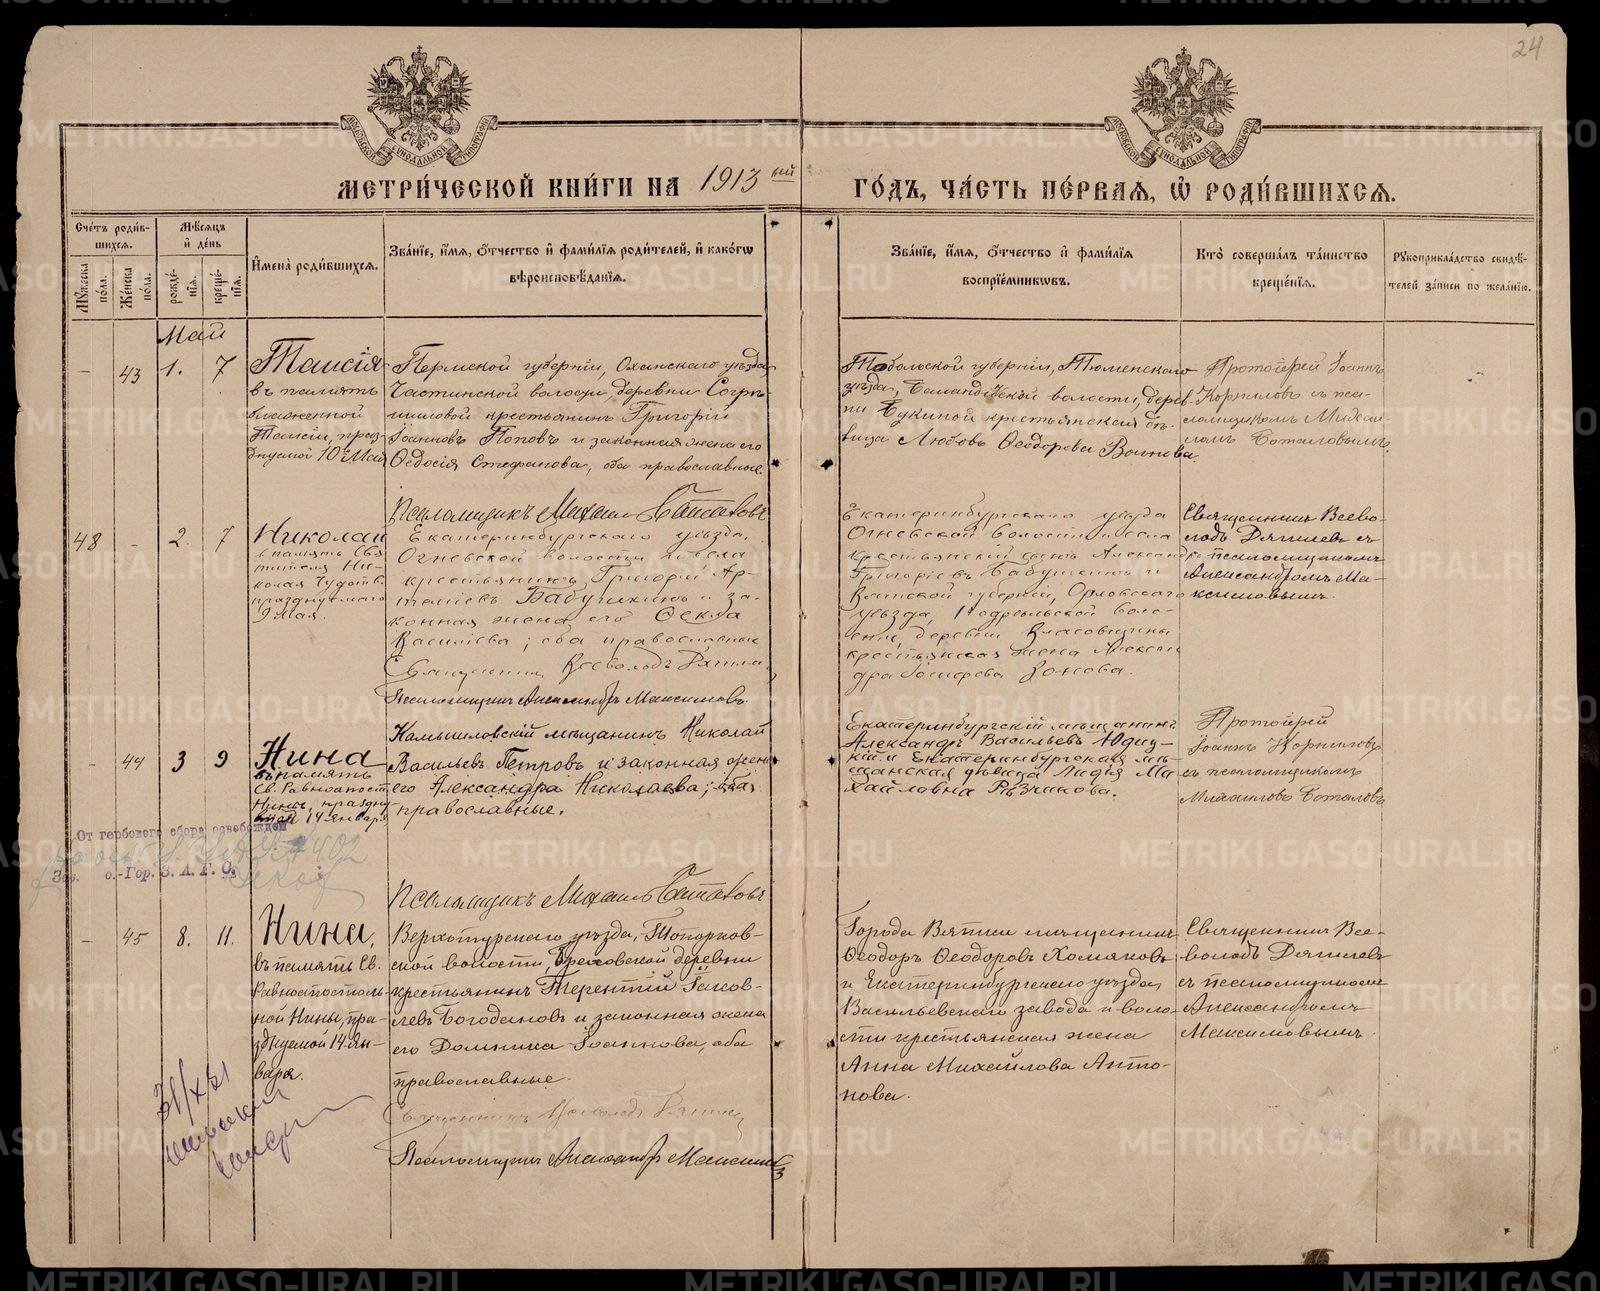 24
МЕТРИ́ЧЕСКОЙ КНИ́ГИ НА 1913 ый ГО́ДЪ, ЧА́СТЬ ПЕ́РВАЯ, Ѡ РОДИ́ВШИХСЯ.
Сче́тъ роди́вшихся.
Му́жеска по́ла.
Же́нска по́ла.
Мѣ́сяцъ и҆ де́нь
рожде́нїя.
креще́нїя.
И҆мена̀ роди́вшихся.
Зва́нїе, и҆́мя, ѻ҆́тчество и҆ фами́лїя роди́телей, и҆ како́гѡ
вѣроисповѣ́данїя.
Зва́нїе, и҆́мя, ѻ҆́тчество и҆ фами́лїя
воспрїе́мникѡвъ.
Кто̀ соверша́лъ та́инство
креще́нїя.
Рꙋкоприкла́дство свидѣ́-
телей за́писи по жела́нїю.
Май
— 43 1. 7
Таисія
въ память
блаженной
Таисіи, праз-
днуемой 10 Мая
Пермской губерніи, Оханскаго уѣзда
Частинской волости, деревни
крестьянинъ Григорій
Іоанновъ Поповъ и законная жена его
Ѳедосія Стефанова, оба православные.
Псаломщикъ Михаилъ
Тобольской губерніи, Тюменскаго
уѣзда, волости, дерев-
ни Букиной крестьянская дѣ-
вица Любовь Ѳеодорова
Протоіерей Іоаннъ
Корниловъ съ пса-
ломщикомъ Михаи-
ломъ
48 — 2. 7
Николай
въ память Свя-
тителя Ни-
колая Чудотв.
празднуемаго
9 мая.
Екатеринбургскаго уѣзда,
Огневской волости и села
крестьянинъ Григорій Ар-
теміевъ Бабушкинъ и за-
конная жена его Ѳекла
Василіева; оба православные
Священникъ Всеволодъ
Псаломщикъ Александръ Максимовъ.
Екатеринбургскаго уѣзда
Огневской волости и села
крестьянскій сынъ Александръ
Григорьевъ Бабушкинъ и
Вятской губерніи, Орловскаго
уѣзда, воло-
сти, деревни Власовщины
крестьянская жена Алексан-
дра Іосифова Зонова.
Священникъ Всево-
лодъ съ
псаломщикомъ
Александромъ Ма-
ксимовымъ.
— 44 3 9
Нина
въ память
Св. Равноапост.
Нины, праздну-
емой 14 января
Камышловскій мѣщанинъ Николай
Васильевъ Петровъ и законная жена
его Александра Николаева; оба
православные.
Псаломщикъ Михаилъ
Екатеринбургскій мѣщанинъ
Александръ Васильевъ Юдиц-
кій и Екатеринбургская мѣ-
щанская дѣвица Лидія Ми-
хайловна
Протоіерей
Іоаннъ Корниловъ
съ псаломщикомъ
Михаиломъ
От гербового сбора освобожден
Зав. о.-Гор. З. А. Г. С.
— 45 8. 11.
Нина,
въ память Св.
Равноапостоль-
ной Нины, пра-
зднуемой 14 Ян-
варя.
Верхотурскаго уѣзда, Топорков-
ской волости, деревни
крестьянинъ Терентій Іаков-
левъ Богодановъ и законная жена
его Домника Іоаннова, оба
православные.
Священникъ Всеволодъ
Псаломщикъ Александръ Максимовъ
Города Вятки мѣщанинъ
Ѳеодоръ Ѳеодоровъ Хомяковъ
и Екатеринбургскаго уѣзда,
Васильевскаго завода и воло-
сти крестьянская жена
Анна Михайлова Анто-
нова.
Священникъ Все-
володъ
съ псаломщикомъ
Александромъ
Максимовымъ.
METRIKI.GASO-URAL.RU